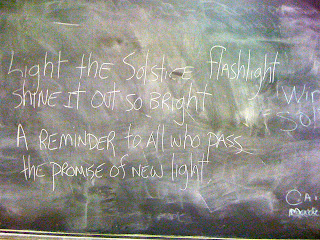 Light the Solstice flashlight
SHINE IT OUT SO BRIGHT
A REMINDER TO All WHO PASS
the PROMISE OF NEW light